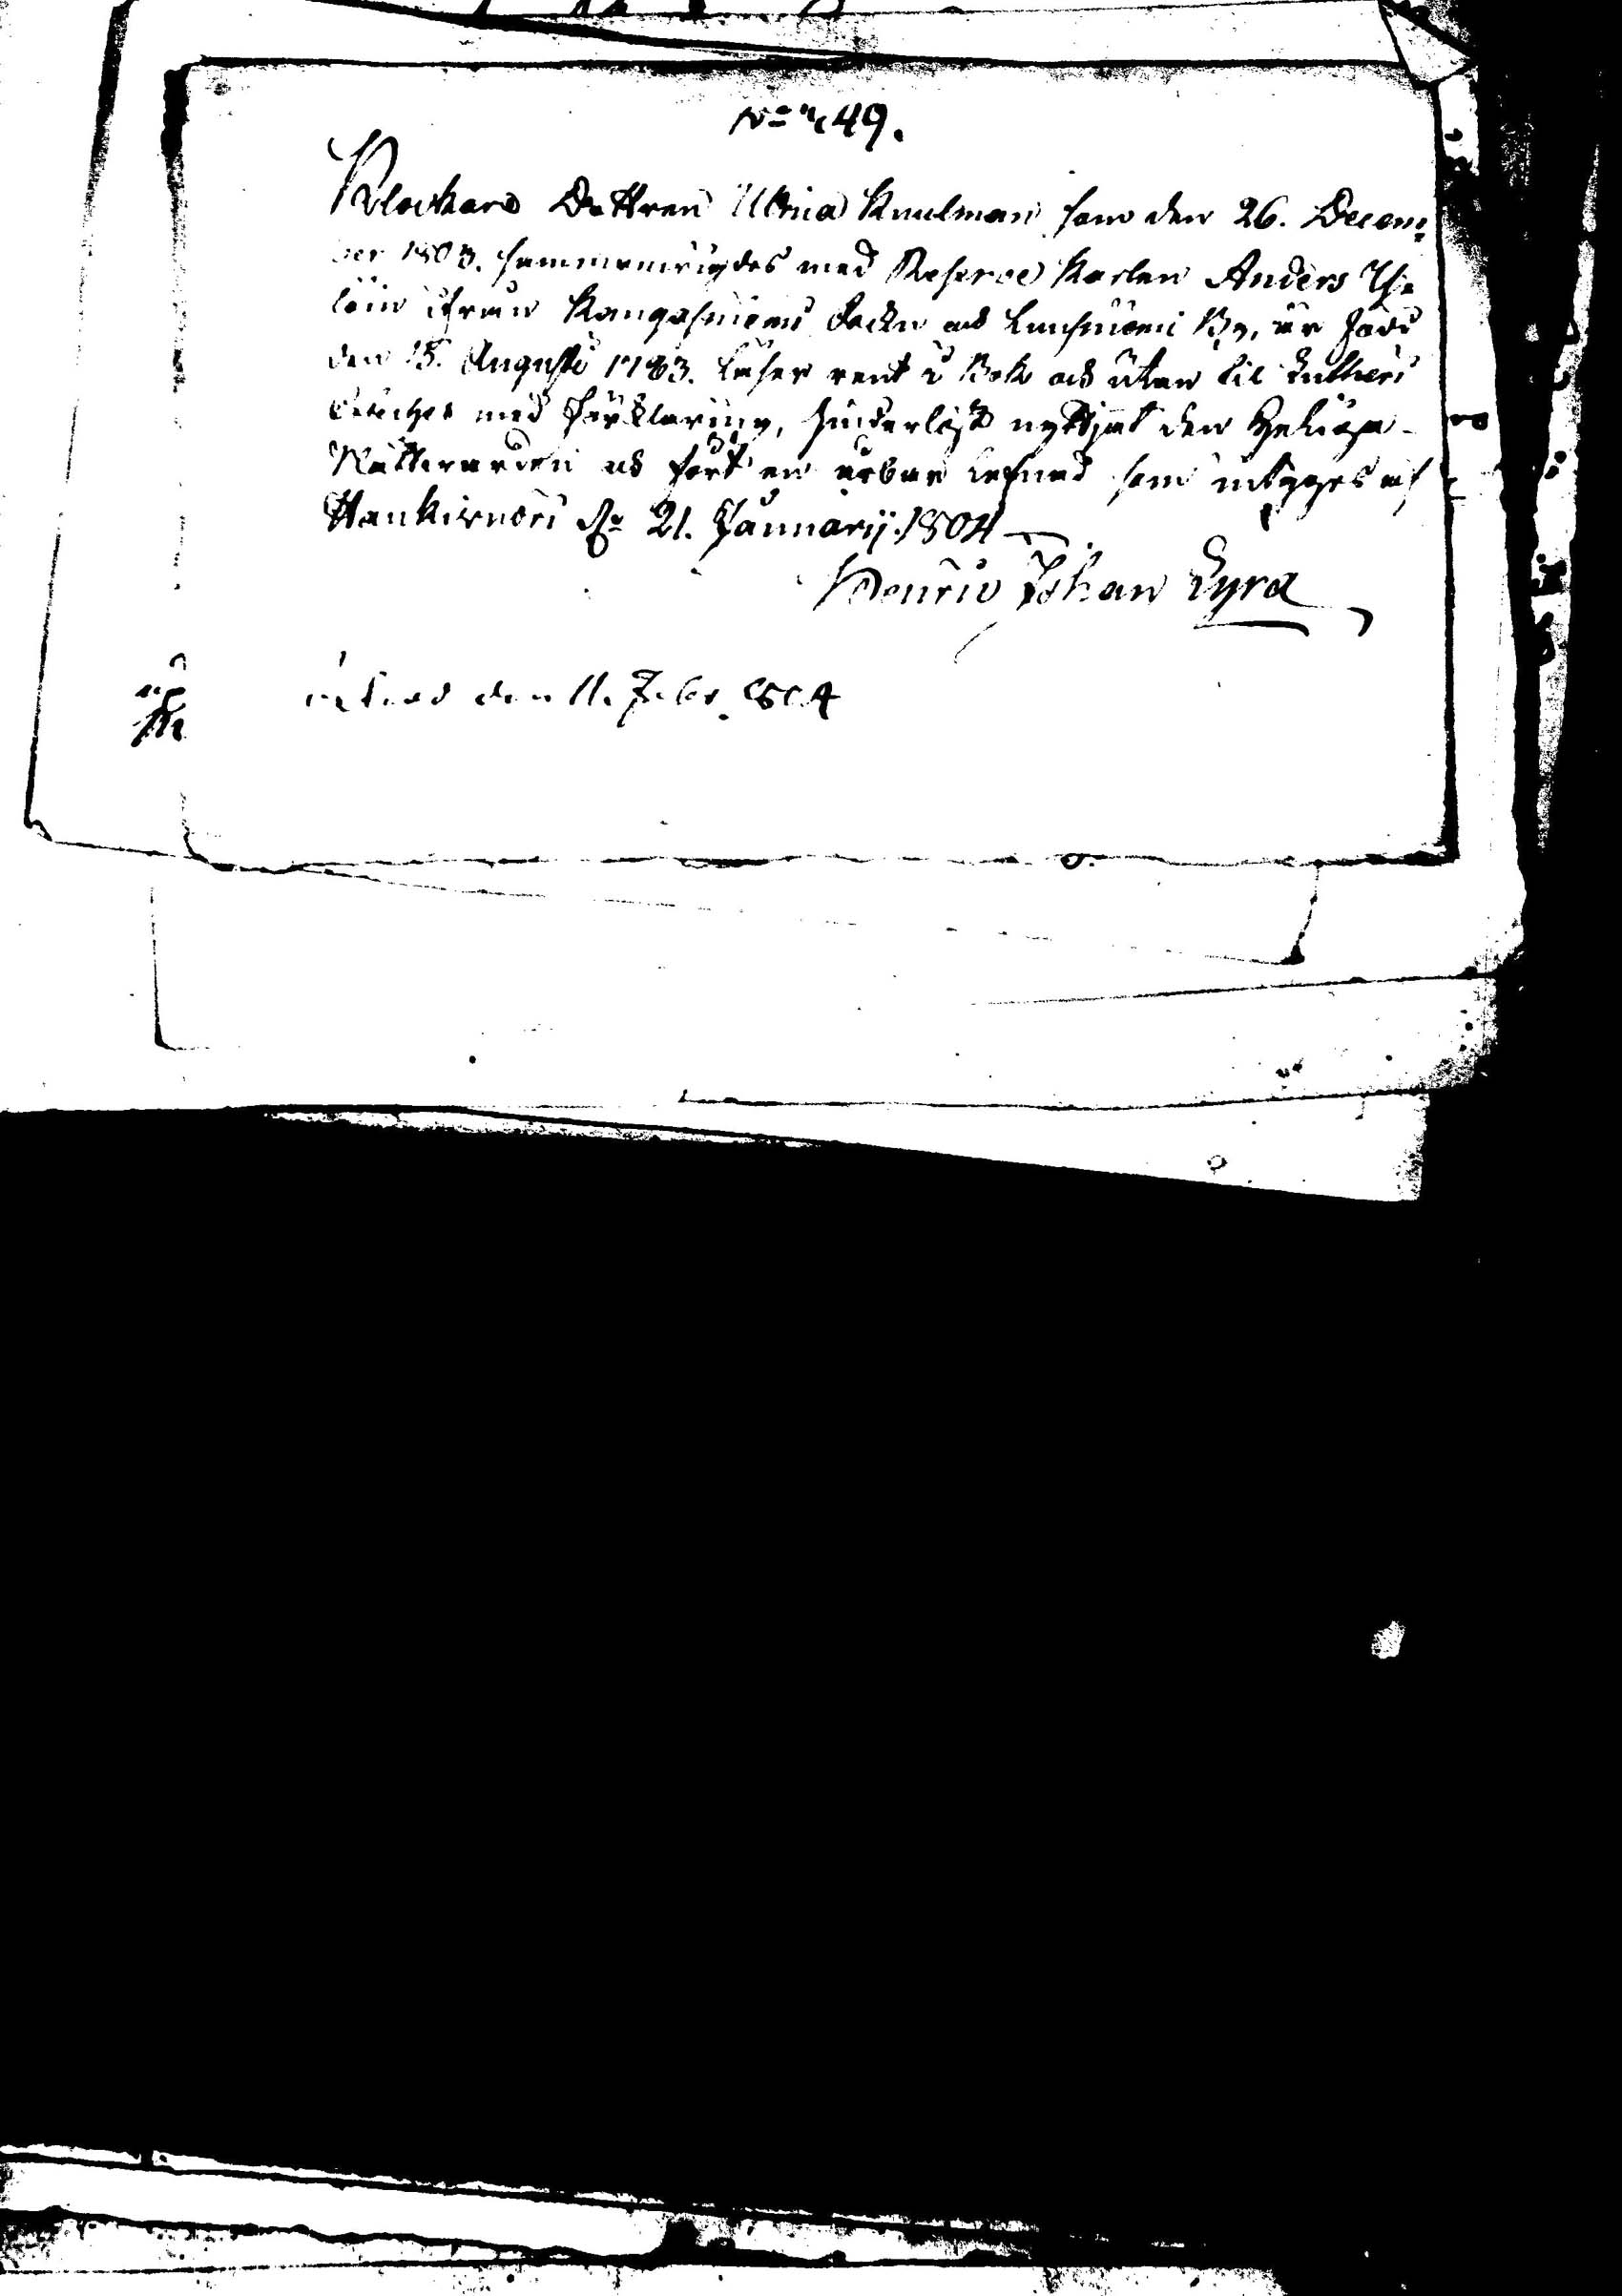 No 49.
Klockare Dottren Ulrica Kuulman som den 26. Decem=
ber 1803. sammanwigdes med Reserve Karlen Anders
ifrån Kangasniemi Sockn och By, är född
den 15. Augusti 1783. Läser rent i Bok och utan til Lutheri
Cateches med förklaring, hinderlöst nyttjat den Heliga
Nattvarden och fört en ärbar lefnad som intygas af
Hankivuori d. 21. Januarii 1804
Henric Johan Lyra
den 11. Febr. 1804